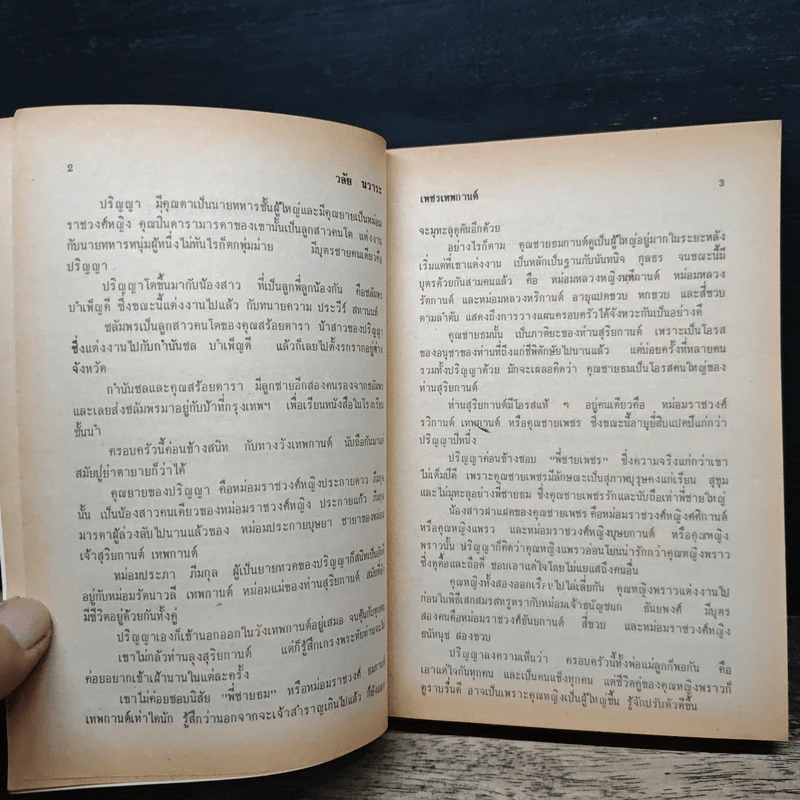 2
วลัย นวาระ
ปริญญา มีคุณตาเป็นนายทหารชั้นผู้ใหญ่และมีคุณยายเป็นหม่อม
ราชวงศ์หญิง คุณปิ่นดารามารดาของเขานั้นเป็นลูกสาวคนโต แต่งงาน
กับนายทหารหนุ่มผู้หนึ่งไม่ทันไรก็ตกพุ่มม่าย มีบุตรชายคนเดียวคือ
ปริญญา
ปริญญาโตขึ้นมากับน้องสาว ที่เป็นลูกพี่ลูกน้องกัน คือชลัมพร
บำเพ็ญดี ซึ่งขณะนี้แต่งงานไปแล้ว กับทนายความ ประวีร์ สหานนท์
ชลัมพรเป็นลูกสาวคนโตของคุณสร้อยดารา น้าสาวของปริญญา
ซึ่งแต่งงานไปกับกำนันชล บำเพ็ญดี แล้วก็เลยไปตั้งรกรากอยู่ต่าง
จังหวัด
กำนันชลและคุณสร้อยดารา มีลูกชายอีกสองคนรองจากชลัมพร
และเลยส่งชลัมพรมาอยู่กับป้าที่กรุงเทพฯ เพื่อเรียนหนังสือในโรงเรียน
ชั้นนำ
ครอบครัวนี้ค่อนข้างสนิท กับทางวังเทพกานต์ นับถือกันมาแต่
สมัยปู่ย่าตายายก็ว่าได้
คุณยายของปริญญา คือหม่อมราชวงศ์หญิงประกายดาว ภีมกุล
นั้น เป็นน้องสาวคนเดียวของหม่อมราชวงศ์หญิง ประกายแก้ว ภีมกุล
มารดาผู้ล่วงลับไปนานแล้วของ หม่อมประกายบุษยา ชายาของหม่อม
เจ้าสุริยกานต์ เทพกานต์
หม่อมประภา ภีมกุล ผู้เป็นยายทวดของปริญญาก็สนิทเป็นอันดี
อยู่กับหม่อมรัตนาวลี เทพกานต์ หม่อมแม่ของท่านสุริยกานต์ สมัยที่ยัง
มีชีวิตอยู่ด้วยกันทั้งคู่
ปริญญาเองก็เข้านอกออกในวังเทพกานต์อยู่เสมอ จนคุ้นกับทุกคน
เขาไม่กลัวท่านลุงสุริยกานต์ แต่ก็รู้สึกเกรงพระทัยท่านจนไม่
ค่อยอยากเข้าเฝ้านานในแต่ละครั้ง
เขาไม่ค่อยชอบนิสัย "พี่ชายธม" หรือหม่อมราชวงศ์ ธมกานต์
เทพกานต์เท่าใดนัก รู้สึกว่านอกจากจะเจ้าสำราญเกินไปแล้ว ก็ยังออก
เพชรเทพกานต์
3
จะมุทะลุดุดันอีกด้วย
อย่างไรก็ตาม คุณชายธมกานต์ดูเป็นผู้ใหญ่อยู่มากในระยะหลัง
เริ่มแต่ที่เขาแต่งงาน เป็นหลักเป็นฐานกับนันทนิจ กุลธร จนขณะนี้มี
บุตรด้วยกันสามคนแล้ว คือ หม่อมหลวงหญิงนพีกานต์ หม่อมหลวง
รัตกานต์ และหม่อมหลวงหริกานต์ อายุแปดขวบ หกขวบ และสี่ขวบ
ตามลำดับ แสดงถึงการวางแผนครอบครัวได้จังหวะกันเป็นอย่างดี
คุณชายธมนั้น เป็นภาติยะของท่านสุริยกานต์ เพราะเป็นโอรส
ของอนุชาของท่านที่ถึงแก่ชีพิตักษัยไปนานแล้ว แต่บ่อยครั้งที่หลายคน
รวมทั้งปริญญาด้วย มักจะเผลอคิดว่า คุณชายธมเป็นโอรสคนใหญ่ของ
ท่านสุริยกานต์
ท่านสุริยกานต์มีโอรสแท้ ๆ อยู่คนเดียวคือ หม่อมราชวงศ์
รวิกานต์ เทพกานต์ หรือคุณชายเพชร ซึ่งขณะนี้อายุยี่สิบแปดปีแก่กว่า
ปริญญาปีหนึ่ง
ปริญญาค่อนข้างชอบ "พี่ชายเพชร" ซึ่งความจริงแก่กว่าเขา
ไม่เต็มปีดี เพราะคุณชายเพชรมีลักษณะเป็นสุภาพบุรุษคงแก่เรียน สุขุม
และไม่มุทะลุอย่างพี่ชายธม ซึ่งคุณชายเพชรรักและนับถือเท่าพี่ชายใหญ่
น้องสาวฝาแฝดของคุณชายเพชร คือหม่อมราชวงศ์หญิงศศิกานต์
หรือคุณหญิงแพรว และหม่อมราชวงศ์หญิงบุษยกานต์ หรือคุณหญิง
พราวนั้น ปริญญาก็คิดว่าคุณหญิงแพรวอ่อนโยนน่ารักกว่าคุณหญิงพราว
ซึ่งดุดื้อและถือดี ชอบเอาแต่ใจโดยไม่แยแสถึงคนอื่น
คุณหญิงทั้งสองออกเรือนไปไล่เลี่ยกัน คุณหญิงพราวแต่งงานไป
ก่อนในพิธีเสกสมรสหรูหรากับหม่อมเจ้าธนัญชนก ธันยพงศ์ มีบุตร
สองคนคือหม่อมราชวงศ์ธันยกานต์ สี่ขวบ และหม่อมราชวงศ์หญิง
ธนัทนุช สองขวบ
ปริญญาลงความเห็นว่า ครอบครัวนี้ทั้งพ่อแม่ลูกก็พอกัน คือ
เอาแต่ใจกันทุกคน และเป็นคนแข็งทุกคน แต่ชีวิตคู่ของคุณหญิงพราวก็
ดูราบรื่นดี อาจเป็นเพราะคุณหญิงเป็นผู้ใหญ่ขึ้น รู้จักปรับตัวดีขึ้น